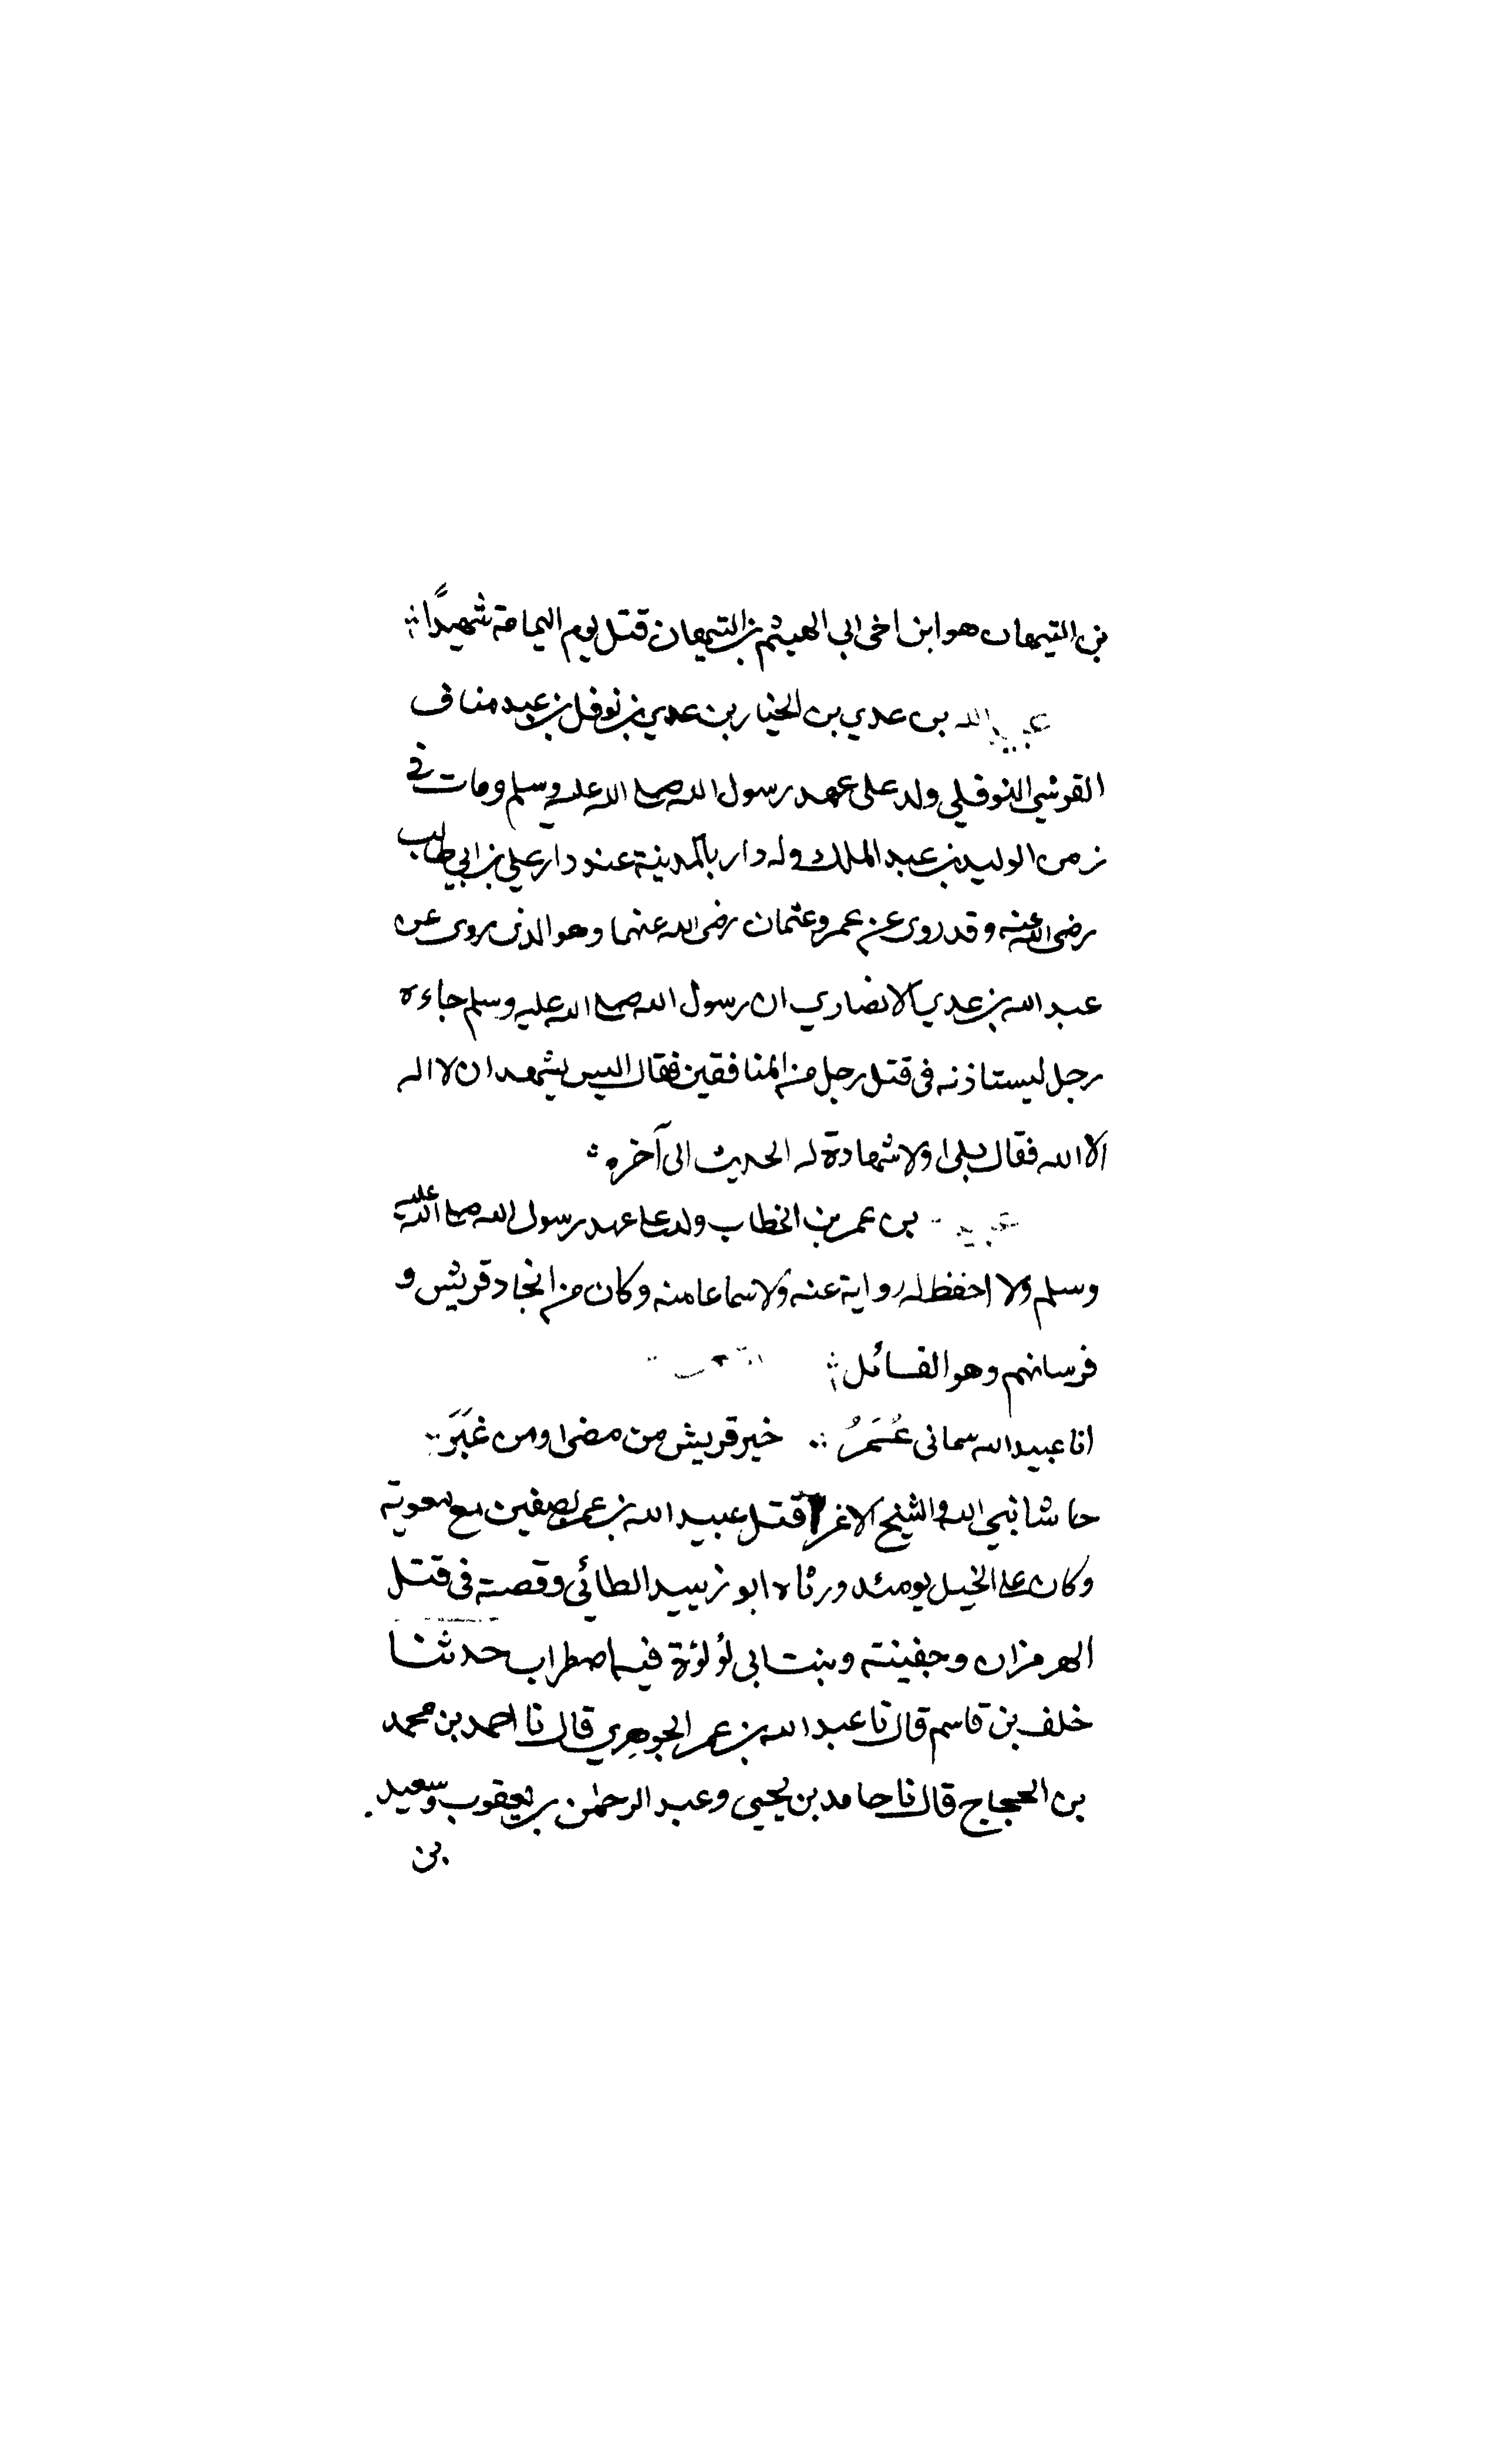 بن التيهان هو ابن اخى ابى الهيثم بن التيهان قتل يوم اليمامة شهيدًا
عبيد الله بن عدي بن الخيار بن عدي بن نوفل بن عبد مناف
القرشي النوفلي ولد على عهد رسول الله صلى الله عليه وسلم ومات في
زمن الوليد بن عبد الملك وله دار بالمدينة عند دار علي بن ابي طالب
رضى الله عنه وقد روى عن عمر وعثمان رضى الله عنهما وهو الذى روى عن
عبد الله بن عدي الانصاري ان رسول الله صلى الله عليه وسلم جاءه
رجل ليستاذنه فى قتل رجل من المنافقين فقال اليس يشهد ان لا اله
الا الله فقال بلى ولا شهادة له الحديث الى آخره
بن عمر بن الخطاب ولد على عهد رسول الله صلى الله عليه
وسلم ولا احفظ له رواية عنه ولا سماعا منه وكان من انجاد قريش و
فرسانهم وهو القائل
انا عبيد الله سمانى عُمَرُ خير قريش من مضى ومن غَبَرَ
حاشا نبي الله والشيخ الاغر قتل عبيد الله بن عمر بصفين مع معوية
وكان على الخيل يومئذ ورثاه ابو زبيد الطائي وقصته فى قتل
الهرمزان وجفينة وبنت ابى لؤلؤة فيها اضطراب حدثنا
خلف بن قاسم قال نا عبد الله بن عمر الجوهري قال نا احمد بن محمد
بن الحجاج قال نا حامد بن يحيى وعبد الرحمٰن بن يعقوب وسعيد
بن